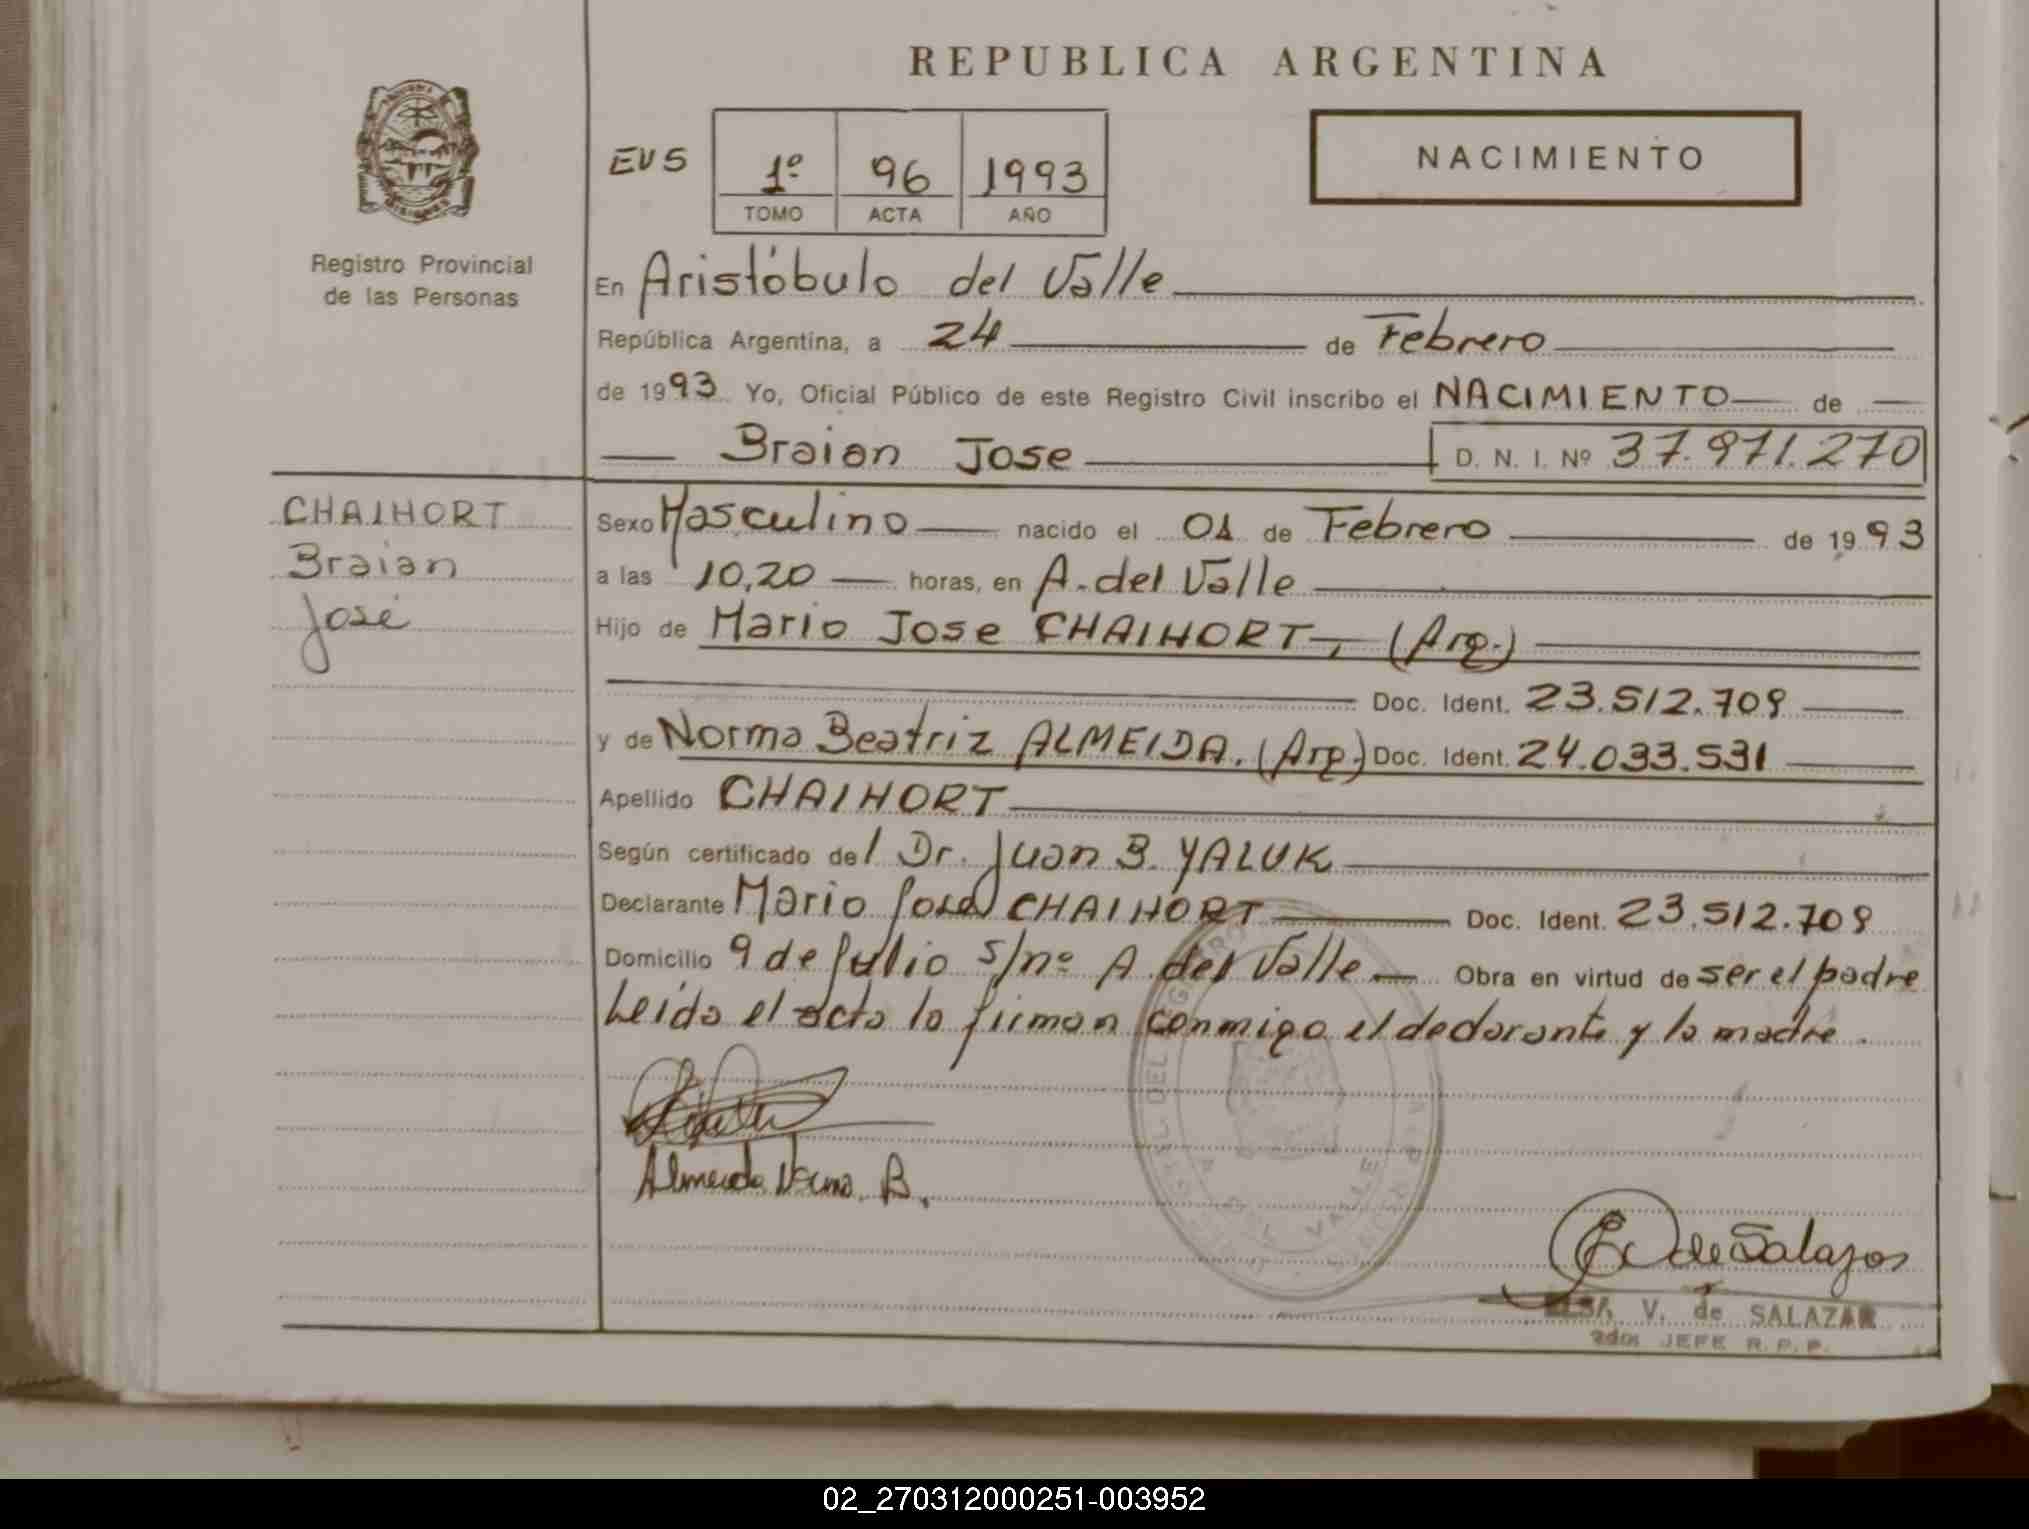 REPUBLICA ARGENTINA
NACIMIENTO
EVS
1º 96 1993
TOMO ACTA AÑO
Registro Provincial
de las Personas
En Aristóbulo del Valle
República Argentina, a 24 de Febrero
de 1993 Yo, Oficial Público de este Registro Civil inscribo el NACIMIENTO de
Braian Jose D. N. I. Nº 37.971.270
CHAIHORT
Braian
José
Sexo Masculino nacido el 01 de Febrero de 1993
a las 10,20 horas, en A. del Valle
Hijo de Mario Jose CHAIHORT, (Arg.)
Doc. Ident. 23.512.709
y de Norma Beatriz ALMEIDA. (Arg.) Doc. Ident. 24.033.531
Apellido CHAIHORT
Según certificado del Dr. Juan B. YALUK
Declarante Mario José CHAIHORT Doc. Ident. 23.512.709
Domicilio 9 de Julio s/nº A. del Valle Obra en virtud de ser el padre
Leída el acta la firman conmigo el declarante y la madre.
Almeida Norma. B.
de Salazar
ELSA V. de SALAZAR
JEFE R. P. P.
02_270312000251-003952